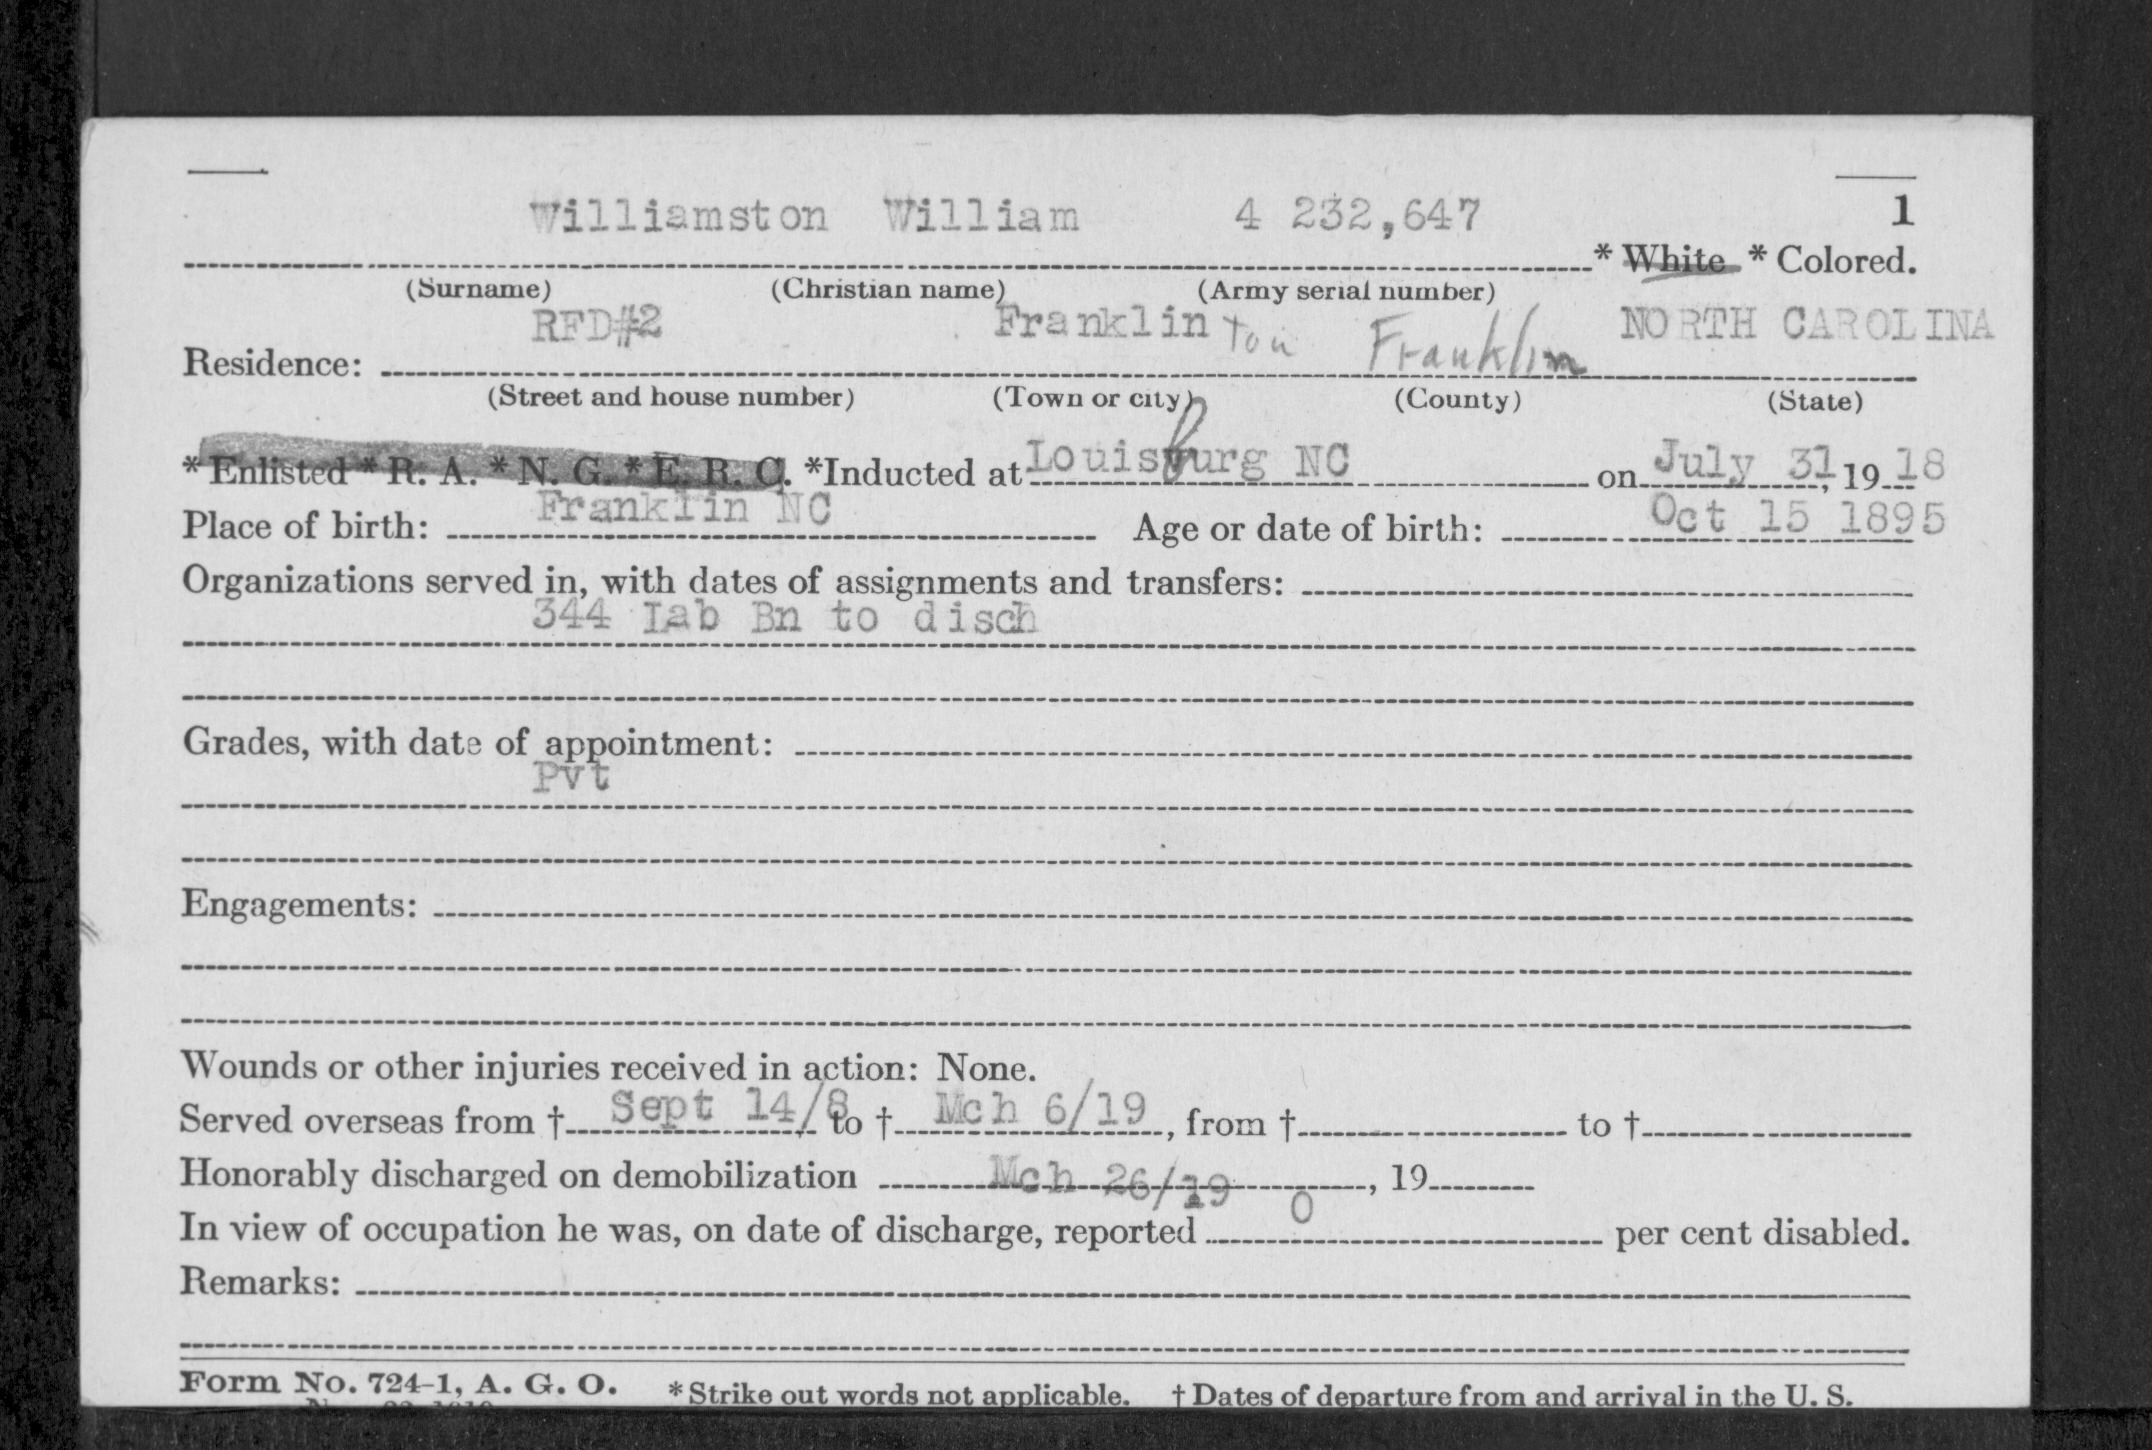 Williamston William 4 232,647 1
* White * Colored.
(Surname) (Christian name) (Army serial number)
RFD#2 Franklinton Franklin NORTH CAROLINA
Residence:
(Street and house number) (Town or city) (County) (State)
* Enlisted * R. A. * N. G. * E. R. C. *Inducted at Louisburg NC on July 31, 19 18
Place of birth: Franklin NC Age or date of birth: Oct 15 1895
Organizations served in, with dates of assignments and transfers:
344 Lab Bn to disch
Grades, with date of appointment:
Pvt
Engagements:
Wounds or other injuries received in action: None.
Served overseas from † Sept 14/8 to † Mch 6/19, from † to †
Honorably discharged on demobilization Mch 26/19, 19
In view of occupation he was, on date of discharge, reported 0 per cent disabled.
Remarks:
Form No. 724-1, A. G. O. * Strike out words not applicable. † Dates of departure from and arrival in the U. S.